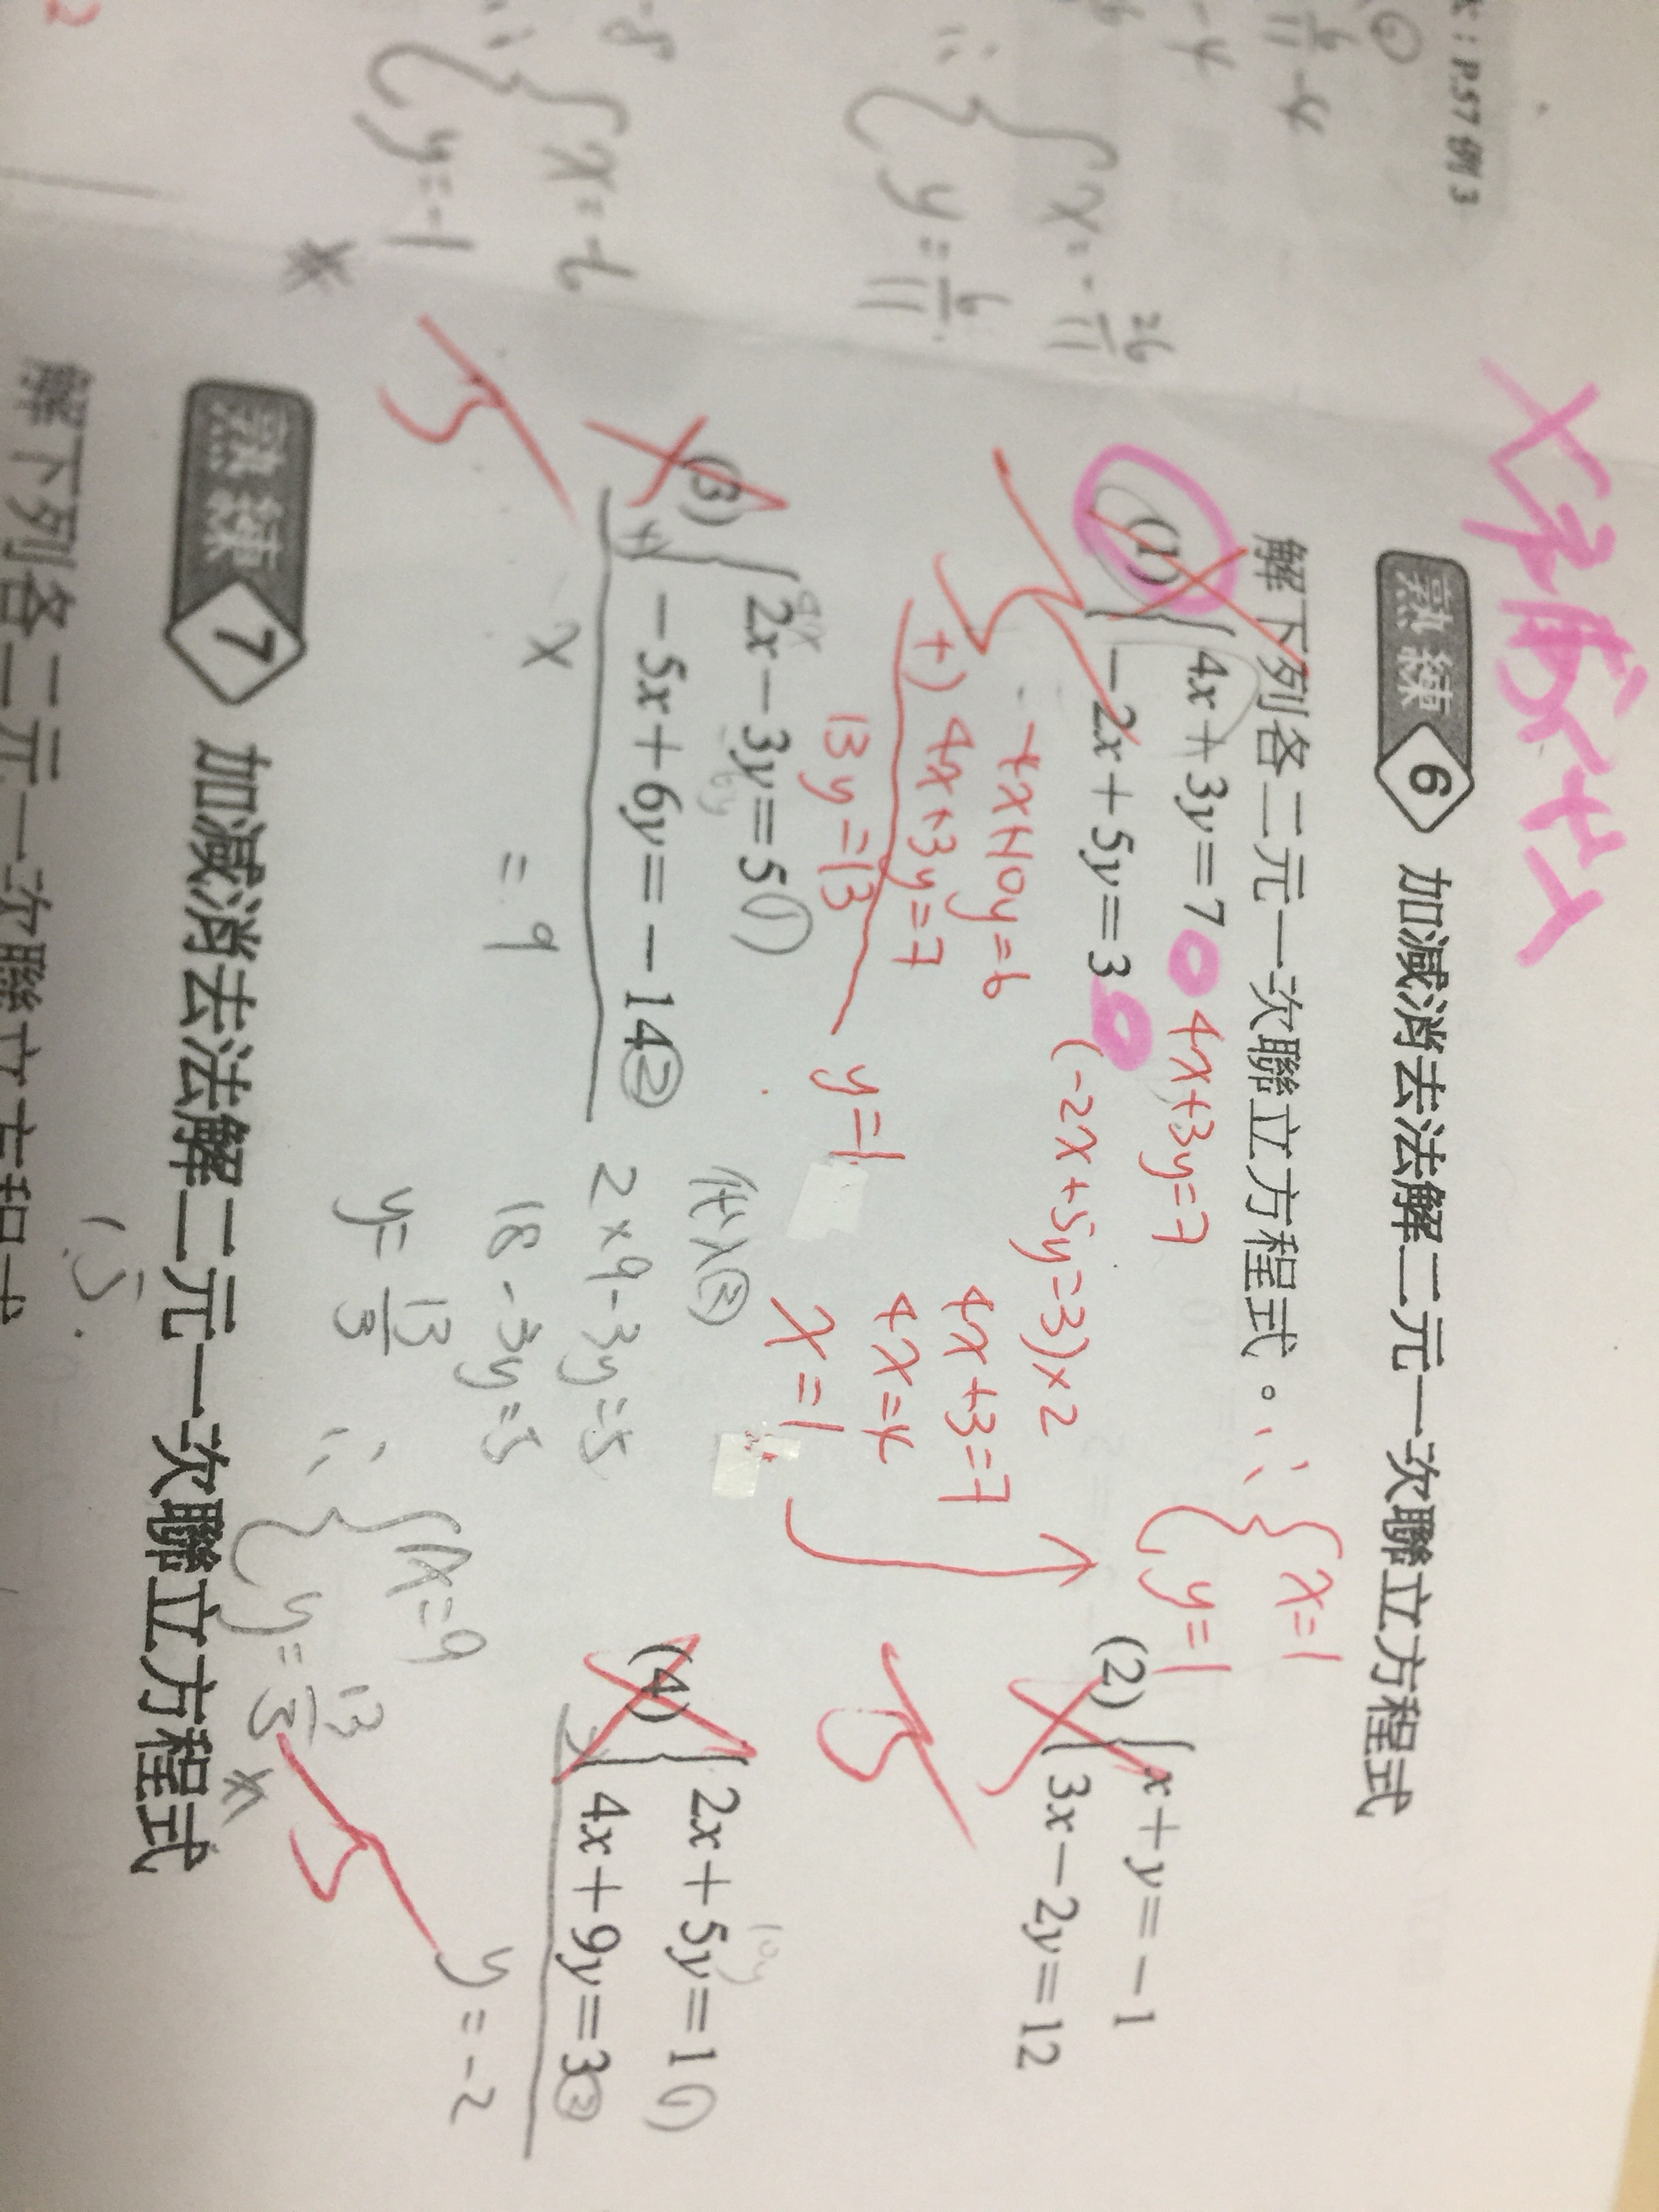 k：P.57 例3
-4
x = -26/11
∴{
y = 6/11
-8
x = -6
∴{
y = -1
※
熟練 6 加減消去法解二元一次聯立方程式
解下列各二元一次聯立方程式。
∴{ x=1
y=1
(1) { 4x+3y=7 4x+3y=7
-2x+5y=3 (-2x+5y=3)×2
-4x+10y=6
+) 4x+3y=7
13y=13
y=1
4x+3=7
4x=4
x=1
(2) { x+y=-1
3x-2y=12
(3) { 2x-3y=5 ①
+) -5x+6y=-14 ②
-x = -9
代x③
2×9-3y=5
18-3y=5
y=13/3
∴{ x=9
y=13/3
(4) { 2x+5y=1 ①
10y
4x+9y=3 ②
y=-2
熟練 7 加減消去法解二元一次聯立方程式
解下列各二元一次聯立方程式